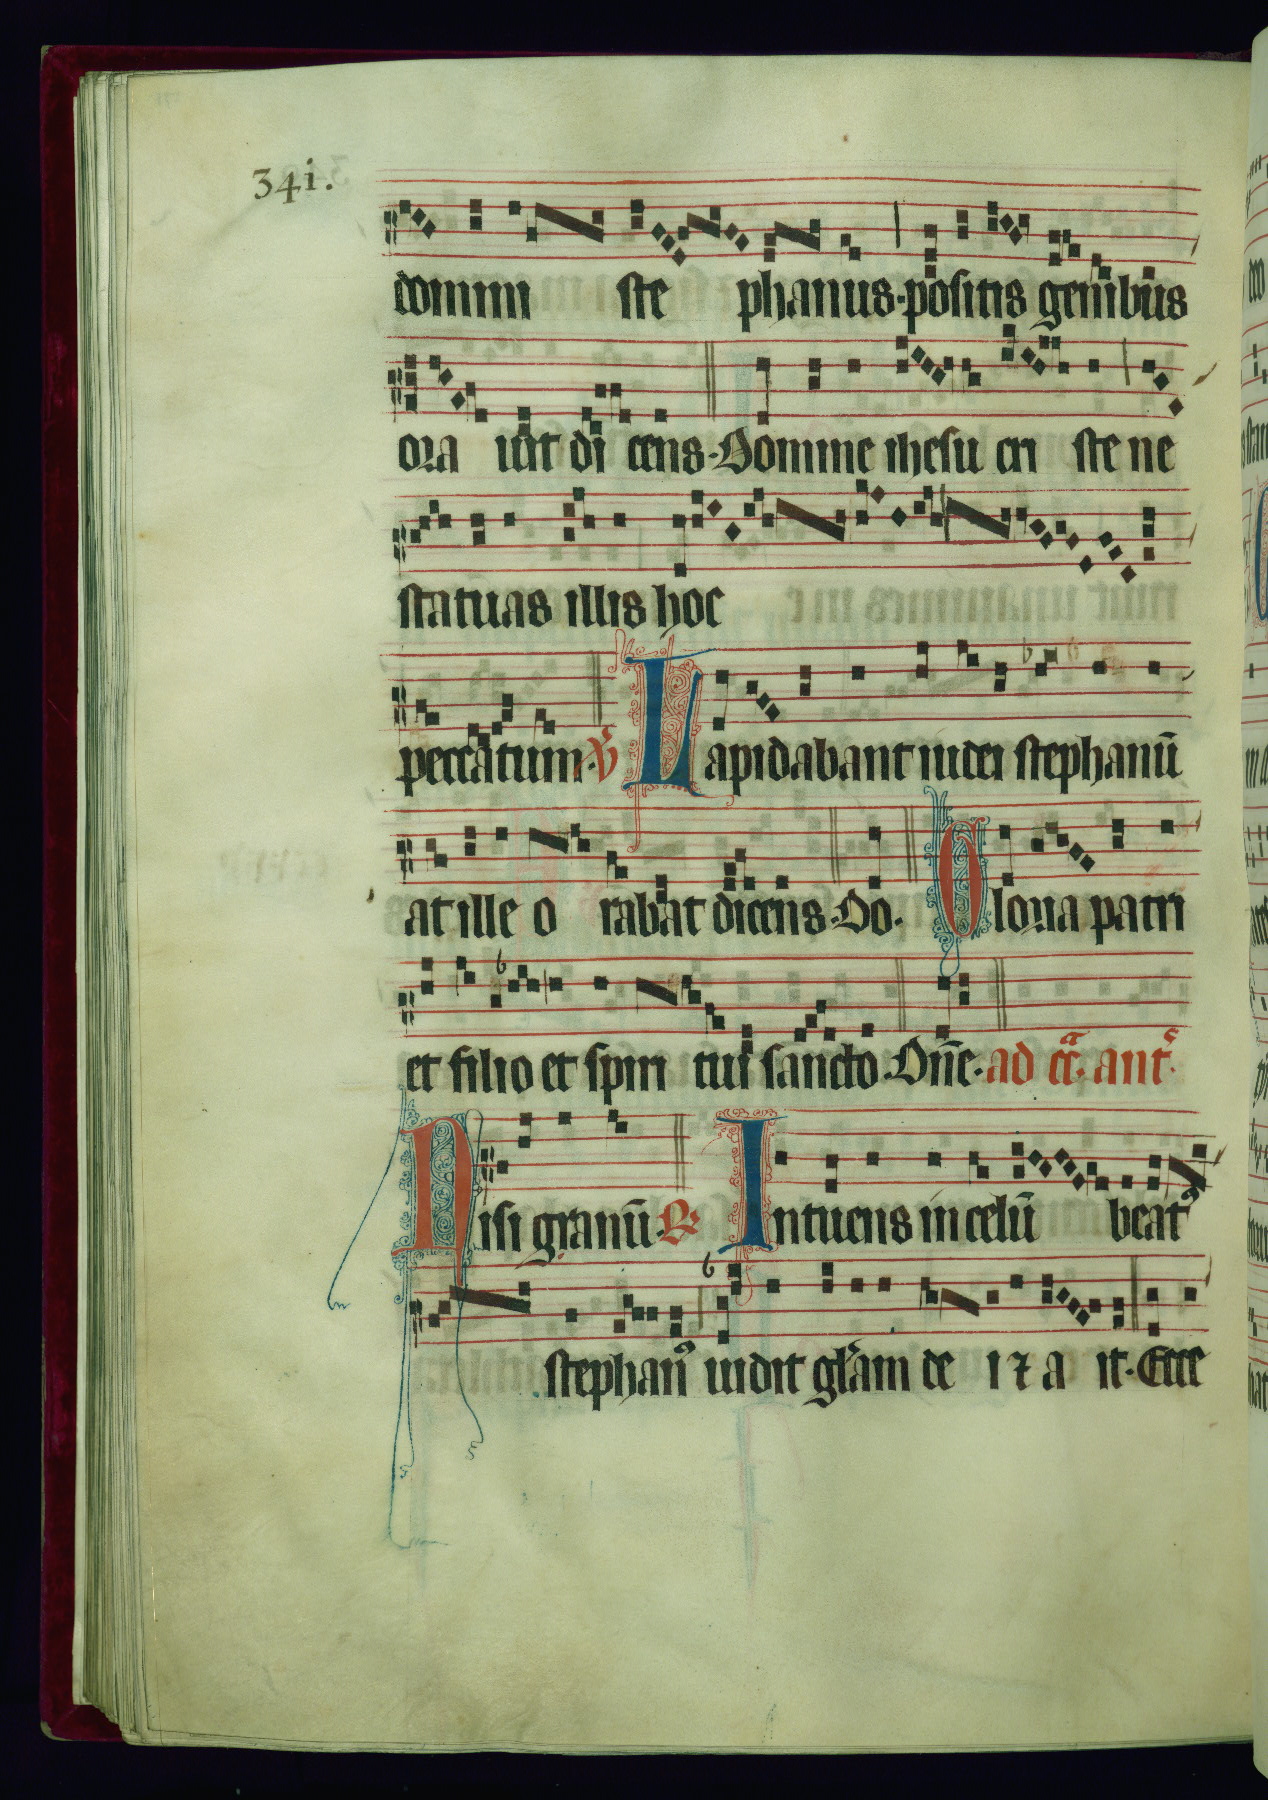 34i.
domini ste phanus·positis genibus
ora uit di cens·Domine ihesu cri ste ne
statuas illis hoc
peccatum· V̉ Lapidabant iudei stephanū
at ille o rabat dicens·Do· Gloria patri
et filio et spiri tui sancto·Dn̄e·ad cc̄a· ant̄
Nisi granū· ℟ Intuens in celū beat᾿
stephan᾿ uidit gl̄am de i ⁊ a it·Ecce